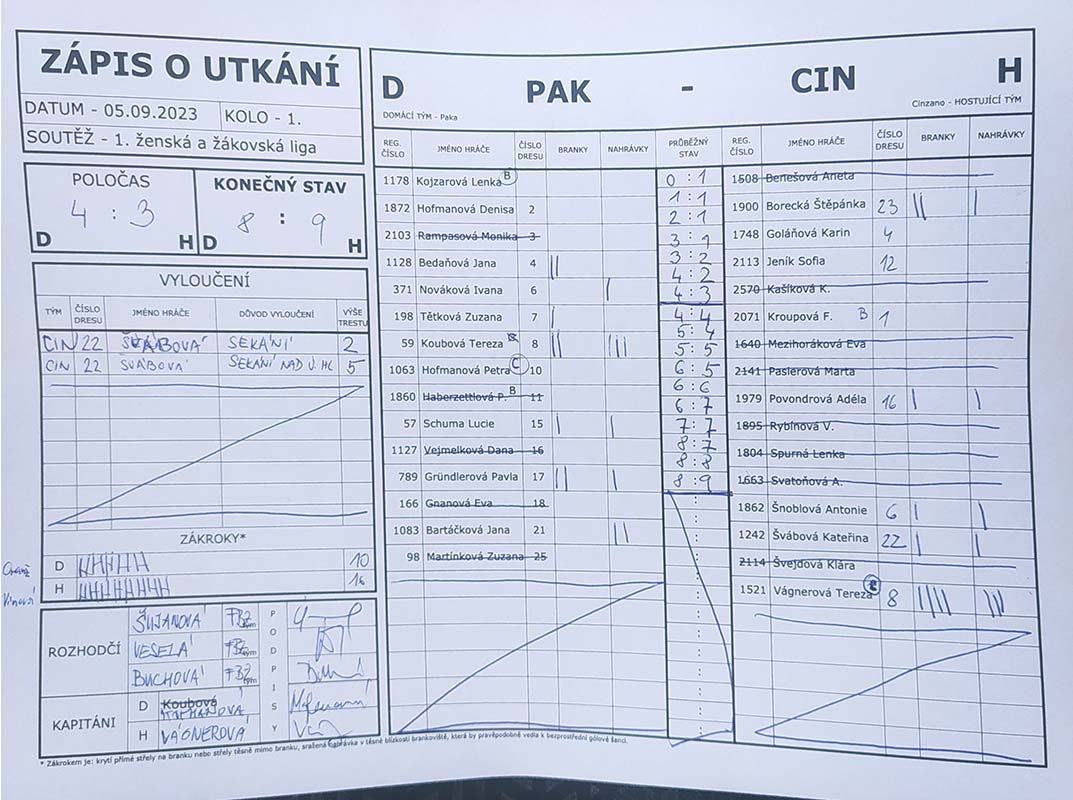 ZÁPIS O UTKÁNÍ
DATUM - 05.09.2023 KOLO - 1.
SOUTĚŽ - 1. ženská a žákovská liga
POLOČAS KONEČNÝ STAV
4 : 3 8 : 9
D H D H
VYLOUČENÍ
TÝM ČÍSLO DRESU JMÉNO HRÁČE DŮVOD VYLOUČENÍ VÝŠE TRESTU
CIN 22 ŠVÁBOVÁ SEKÁNÍ 2
CIN 22 ŠVÁBOVÁ SEKÁNÍ NAD Ú. HL 5
ZÁKROKY*
D 10
H 16
ROZHODČÍ
ŠUJANOVÁ FBŽ tým
VESELÁ FBŽ tým
BUCHOVÁ FBŽ tým
PODPISY
KAPITÁNI
D Koubová
H VÁGNEROVÁ
D PAK - CIN H
DOMÁCÍ TÝM - Paka Cinzano - HOSTUJÍCÍ TÝM
REG. ČÍSLO JMÉNO HRÁČE ČÍSLO DRESU BRANKY NAHRÁVKY PRŮBĚŽNÝ STAV REG. ČÍSLO JMÉNO HRÁČE ČÍSLO DRESU BRANKY NAHRÁVKY
1178 Kojzarová Lenka B
1872 Hofmanová Denisa 2
2103 Rampasová Monika 3
1128 Bedaňová Jana 4 ||
371 Nováková Ivana 6 |
198 Tětková Zuzana 7 |
59 Koubová Tereza 8 || |||
1063 Hofmanová Petra C 10
1860 Haberzettlová P. B 11
57 Schuma Lucie 15 | |
1127 Vejmelková Dana 16
789 Gründlerová Pavla 17 || |
166 Gnanová Eva 18
1083 Bartáčková Jana 21 ||
98 Martínková Zuzana 25
0 : 1
1 : 1
2 : 1
3 : 1
3 : 2
4 : 2
4 : 3
4 : 4
5 : 4
5 : 5
6 : 5
6 : 6
6 : 7
7 : 7
8 : 7
8 : 8
8 : 9
1508 Benešová Aneta
1900 Borecká Štěpánka 23 || |
1748 Goláňová Karin 4
2113 Jeník Sofia 12
2570 Kašíková K.
2071 Kroupová F. B 1
1640 Mezihoráková Eva
2141 Pasierová Marta
1979 Povondrová Adéla 16 | |
1895 Rybínová V.
1804 Spurná Lenka
1663 Svatoňová A.
1862 Šnoblová Antonie 6 | |
1242 Švábová Kateřina 22 | |
2114 Švejdová Klára
1521 Vágnerová Tereza C 8 |||| |||
* Zákrokem je: krytí přímé střely na branku nebo střely těsně mimo branku, sražená nahrávka v těsné blízkosti brankoviště, která by pravěpodobně vedla k bezprostřední gólové šanci.